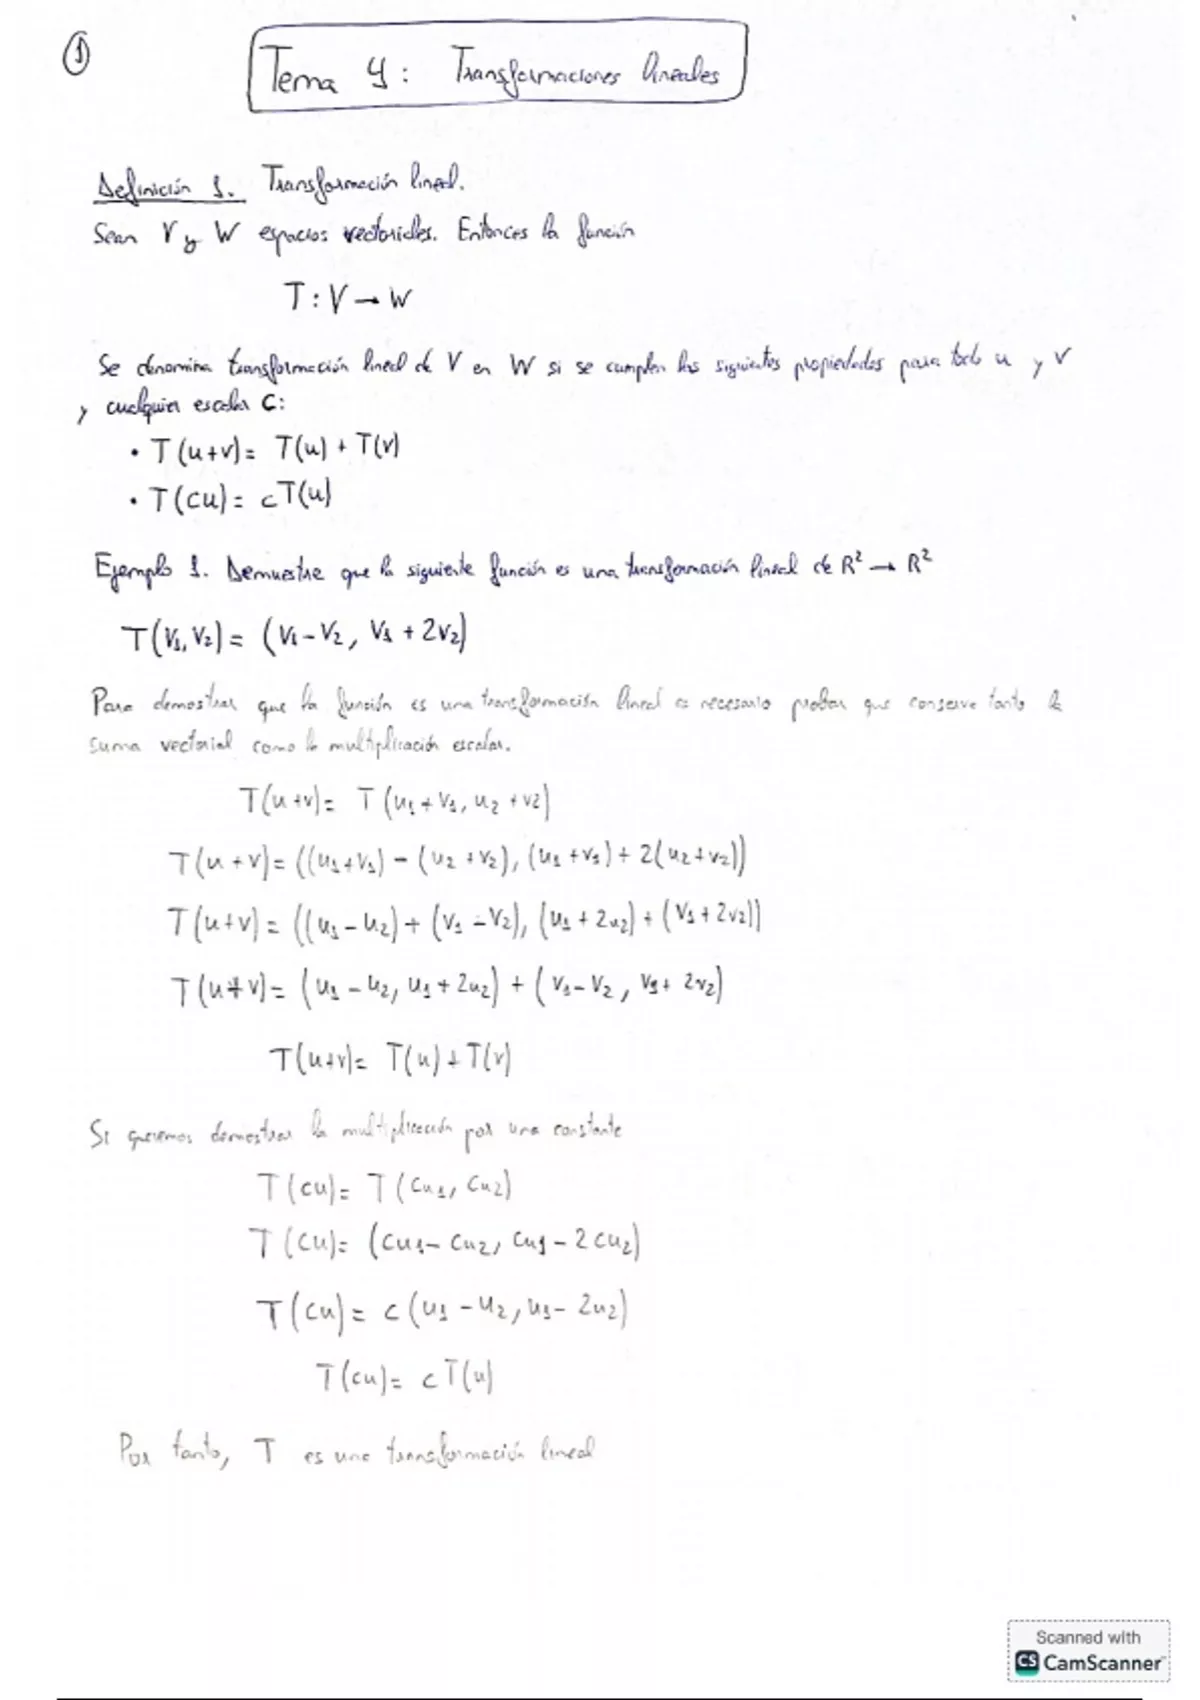 ①
Tema 4: Transformaciones lineales
Definición 1. Transformación lineal.
Sean V y W espacios vectoriales. Entonces la función
T: V → W
Se denomina transformación lineal de V en W si se cumplen las siguientes propiedades para todo u y v
y cualquier escalar C:
• T(u+v)= T(u) + T(v)
• T(cu)= cT(u)
Ejemplo 1. Demuestre que la siguiente función es una transformación lineal de R² → R²
T(v₁, v₂) = (v₁-v₂, v₁ + 2v₂)
Para demostrar que la función es una transformación lineal es necesario probar que conserve tanto la
suma vectorial como la multiplicación escalar.
T(u+v)= T(u₁+v₁, u₂+v₂)
T(u+v)= ((u₁+v₁) - (u₂+v₂), (u₁+v₁) + 2(u₂+v₂))
T(u+v) = ((u₁-u₂) + (v₁-v₂), (u₁+2u₂) + (v₁+2v₂))
T(u+v)= (u₁-u₂, u₁+2u₂) + (v₁-v₂, v₁+2v₂)
T(u+v)= T(u) + T(v)
Si queremos demostrar la multiplicación por una constante
T(cu)= T(cu₁, cu₂)
T(cu)= (cu₁-cu₂, cu₁-2cu₂)
T(cu) = c(u₁-u₂, u₁-2u₂)
T(cu)= cT(u)
Por tanto, T es una transformación lineal
Scanned with
CS CamScanner